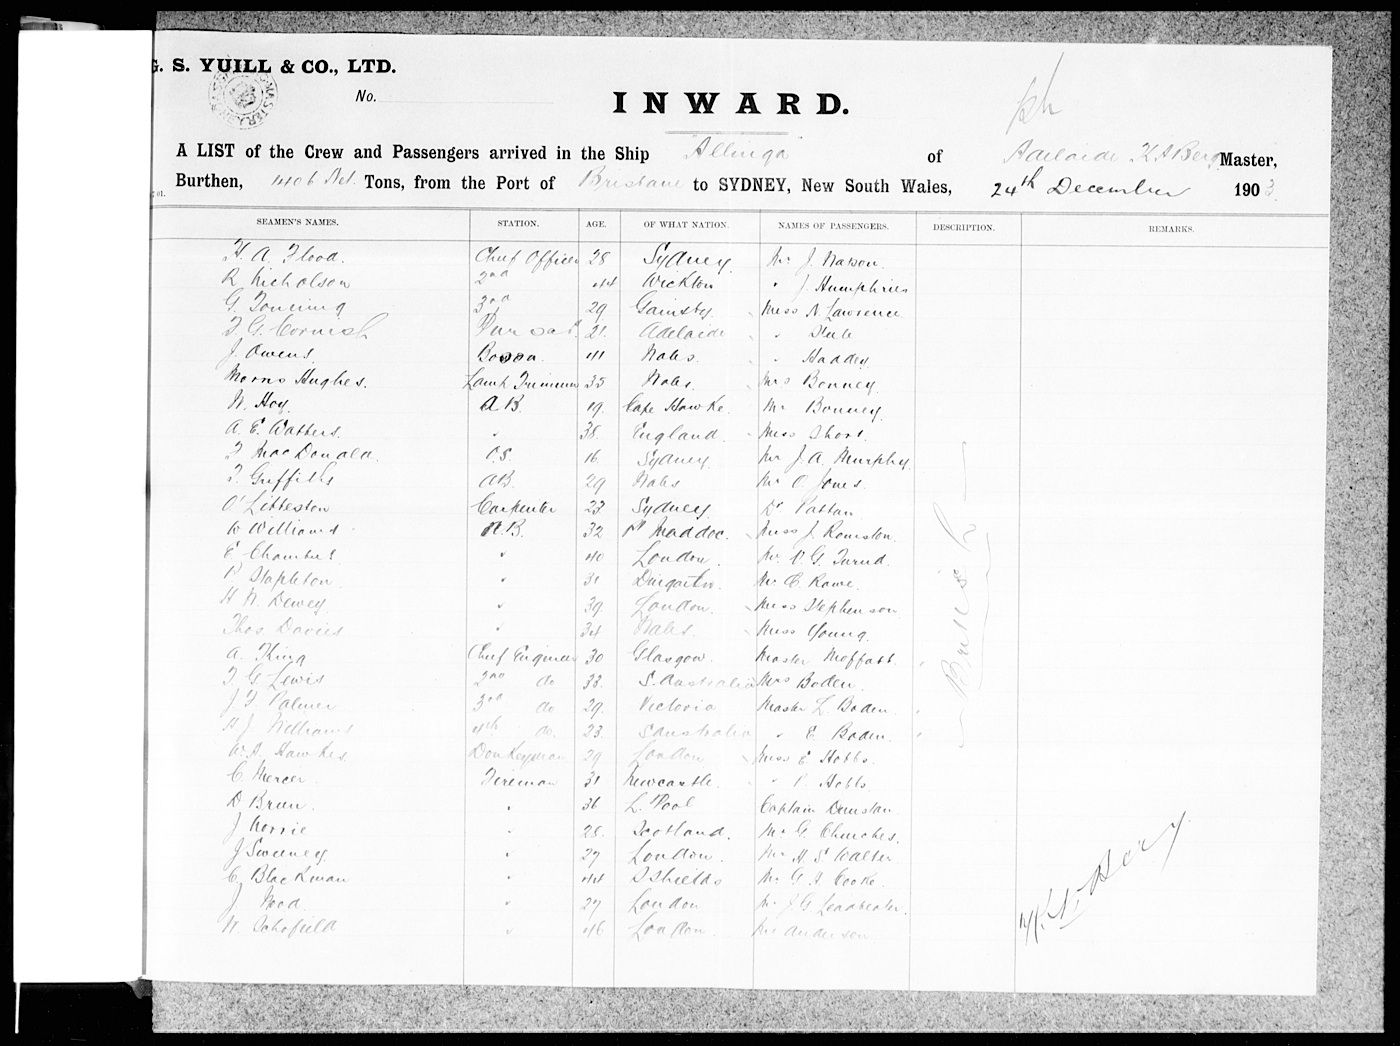 G. S. YUILL & CO., LTD.
No.
INWARD.
A LIST of the Crew and Passengers arrived in the Ship "Allinga" of Adelaide K A Berg Master,
Burthen, 1406 Net. Tons, from the Port of Brisbane to SYDNEY, New South Wales, 24th December 1903
SEAMEN'S NAMES. STATION. AGE. OF WHAT NATION. NAMES OF PASSENGERS. DESCRIPTION. REMARKS.
H. A. Flood. Chief Officer 28 Sydney. Mr J. Nason.
R Nicholson 2nd 44 Wickton " J. Humphries
G. 3rd 29 Miss N Lawrence
F. G. Cornish 21 Adelaide "
J. Owens 41 Wales. " Haddey
Morris Hughes. Lamp Trimmer 35 Wales. Mrs Bonney
W. Hoy. A.B. 19. Cape Hawke. Mr Bonney.
A. E. Watters. " 38. England. Miss Short.
F MacDonald. O.S. 16. Sydney Mr J. A. Murphy.
F. Griffiths AB. 29 Wales Mr O Jones.
O' Litteston Carpenter 23 Sydney Dr Pattan
W Williams A.B. 32 Pt Maddoc. Miss J.
E Chambers " 40 London. Mr V. G.
P Stapleton " 31 Mr C. Rowe.
H W. Dewey " 39 London. Miss Stephenson
Thos Davies " 34 Wales. Miss Young.
A. King Chief Engineer 30 Glasgow. Master Moffatt.
F G Lewis 2nd do 33 S. Australia Mrs Boden.
J. F Palmer 3rd do 29 Victoria Master L. Boden.
H J. Williams 4th do. 23 S Australia " E Boden.
W. A. Hawkes Donkeyman 29 London Miss E Hobbs.
C. Mercer Fireman 31 Newcastle. " P. Hobbs.
D Brun. " 36 L. Pool Captain Dunstan.
J Norrie " 28. Scotland. Mr G. Churches.
J Sweeney " 27 London. Mr H. S Walter
C Blackman " 44 S Shields Mr G A Cooke.
J Wood. " 27 London Mr J. G. Leadbeater.
W. Schofield " 46 London. Mr Andersen
British
K. A. Berg